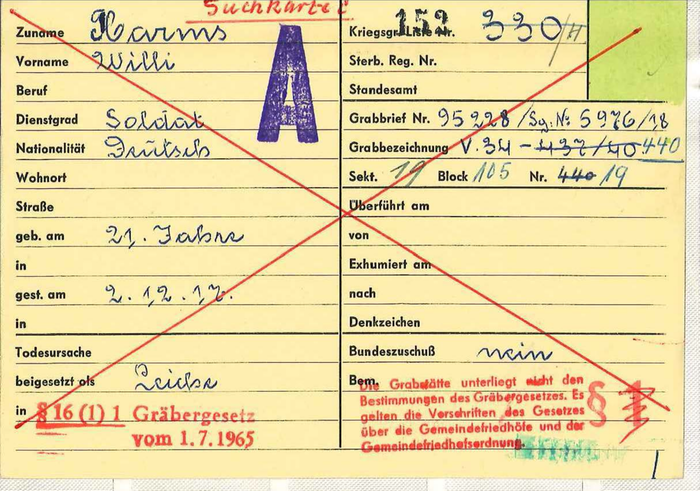 Suchkartei
Zuname Harms
Vorname Willi
Beruf
Dienstgrad Soldat
Nationalität Deutsch
Wohnort
Straße
geb. am 21. Jahre
in
gest. am 2.12.17.
in
Todesursache
beigesetzt als Leiche
in § 16 (1) 1 Gräbergesetz
vom 1.7.1965
A
152
Kriegsgr. Liste Nr. 330/H
Sterb. Reg. Nr.
Standesamt
Grabbrief Nr. 95228/Sg.№ 5976/18
Grabbezeichnung V. 34 - 437/40 440
Sekt. 19 Block 105 Nr. 440 19
Überführt am
von
Exhumiert am
nach
Denkzeichen
Bundeszuschuß nein
Bem.
Die Grabstätte unterliegt nicht den
Bestimmungen des Gräbergesetzes. Es
gelten die Vorschriften des Gesetzes
über die Gemeindefriedhöfe und der
Gemeindefriedhofsordnung.
§ 1